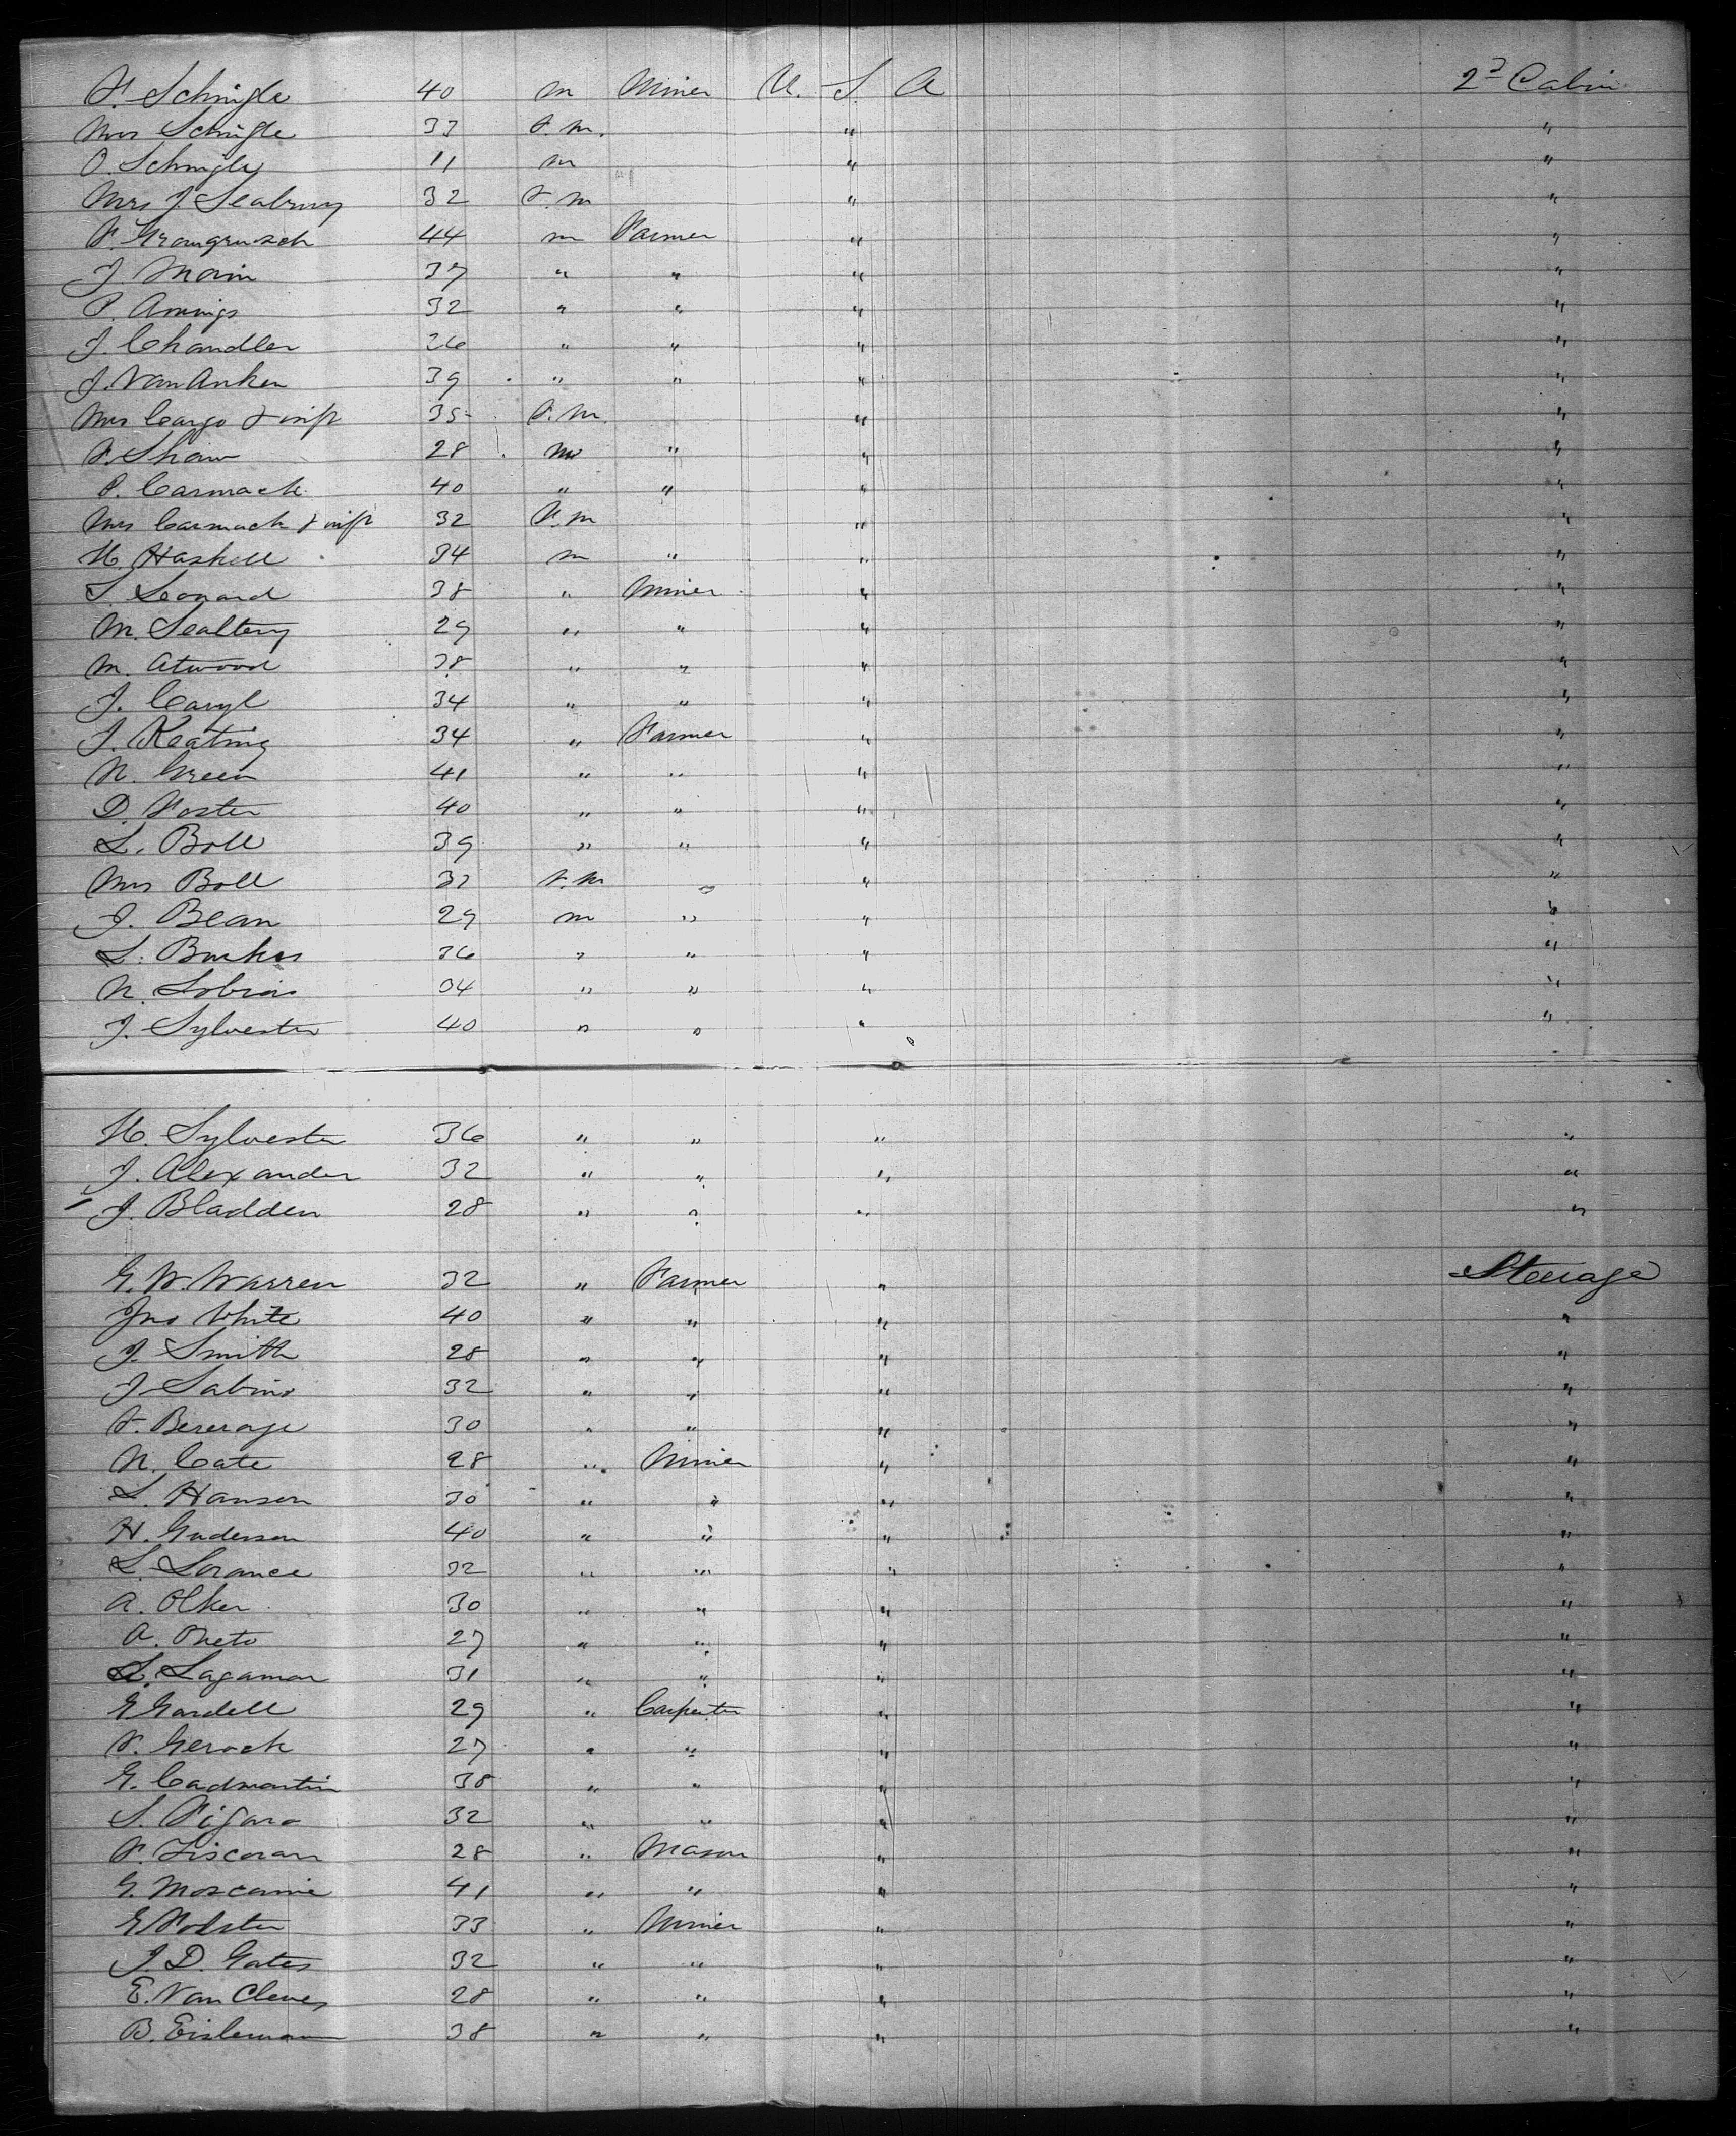 F. Schingle 40 m Miner U. S. A 2d Cabin
Mrs Schingle 33 F. m. " "
O. Schingle 11 m " "
Mrs J. Seabury 32 F. m " "
F. 44 m Farmer " "
J. Morin 37 " " " "
P. 32 " " " "
J. Chandler 26 " " " "
J. Van Anken 39 " " " "
Mrs Cargo & inft 35 F. m. " "
F. Shaw 28 m " " "
P. Carmack 40 " " " "
Mrs Carmack & inft 32 F. m " "
H. Haskell 34 m " " "
S. Leonard 38 " Miner " "
M. 29 " " " "
M. Atwood 38 " " " "
J. Caryl 34 " " " "
J. Keating 34 " Farmer " "
N. Green 41 " " " "
D. Foster 40 " " " "
L. Boll 39 " " " "
Mrs Boll 32 F. m " " "
J. Bean 29 m " " "
L. 36 " " " "
N. 34 " " " "
J. Sylvester 40 " " " "
H. Sylvester 36 " " " "
J. Alexander 32 " " " "
J. Bladden 28 " " " "
G. W. Warren 32 " Farmer " Steerage
Jno White 40 " " " "
J. Smith 28 " " " "
J. Sabins 32 " " " "
F. Beverage 30 " " " "
N. Cate 28 " Miner " "
L. Hanson 30 " " " "
H. Guderson 40 " " " "
L. Lorance 32 " " " "
A. Olker 30 " " " "
A. Oneto 27 " " " "
L. Lagamar 31 " " " "
G Gardell 29 " Carpenter " "
F. Gerock 27 " " " "
G. Cadmartin 38 " " " "
S. Figaro 32 " " " "
F. Liscoran 28 " Mason " "
G. Moscanie 41 " " " "
G Folster 33 " Miner " "
J. D. Gates 32 " " " "
E. Van Cleves 28 " " " "
B. Eislemann 38 " " " "